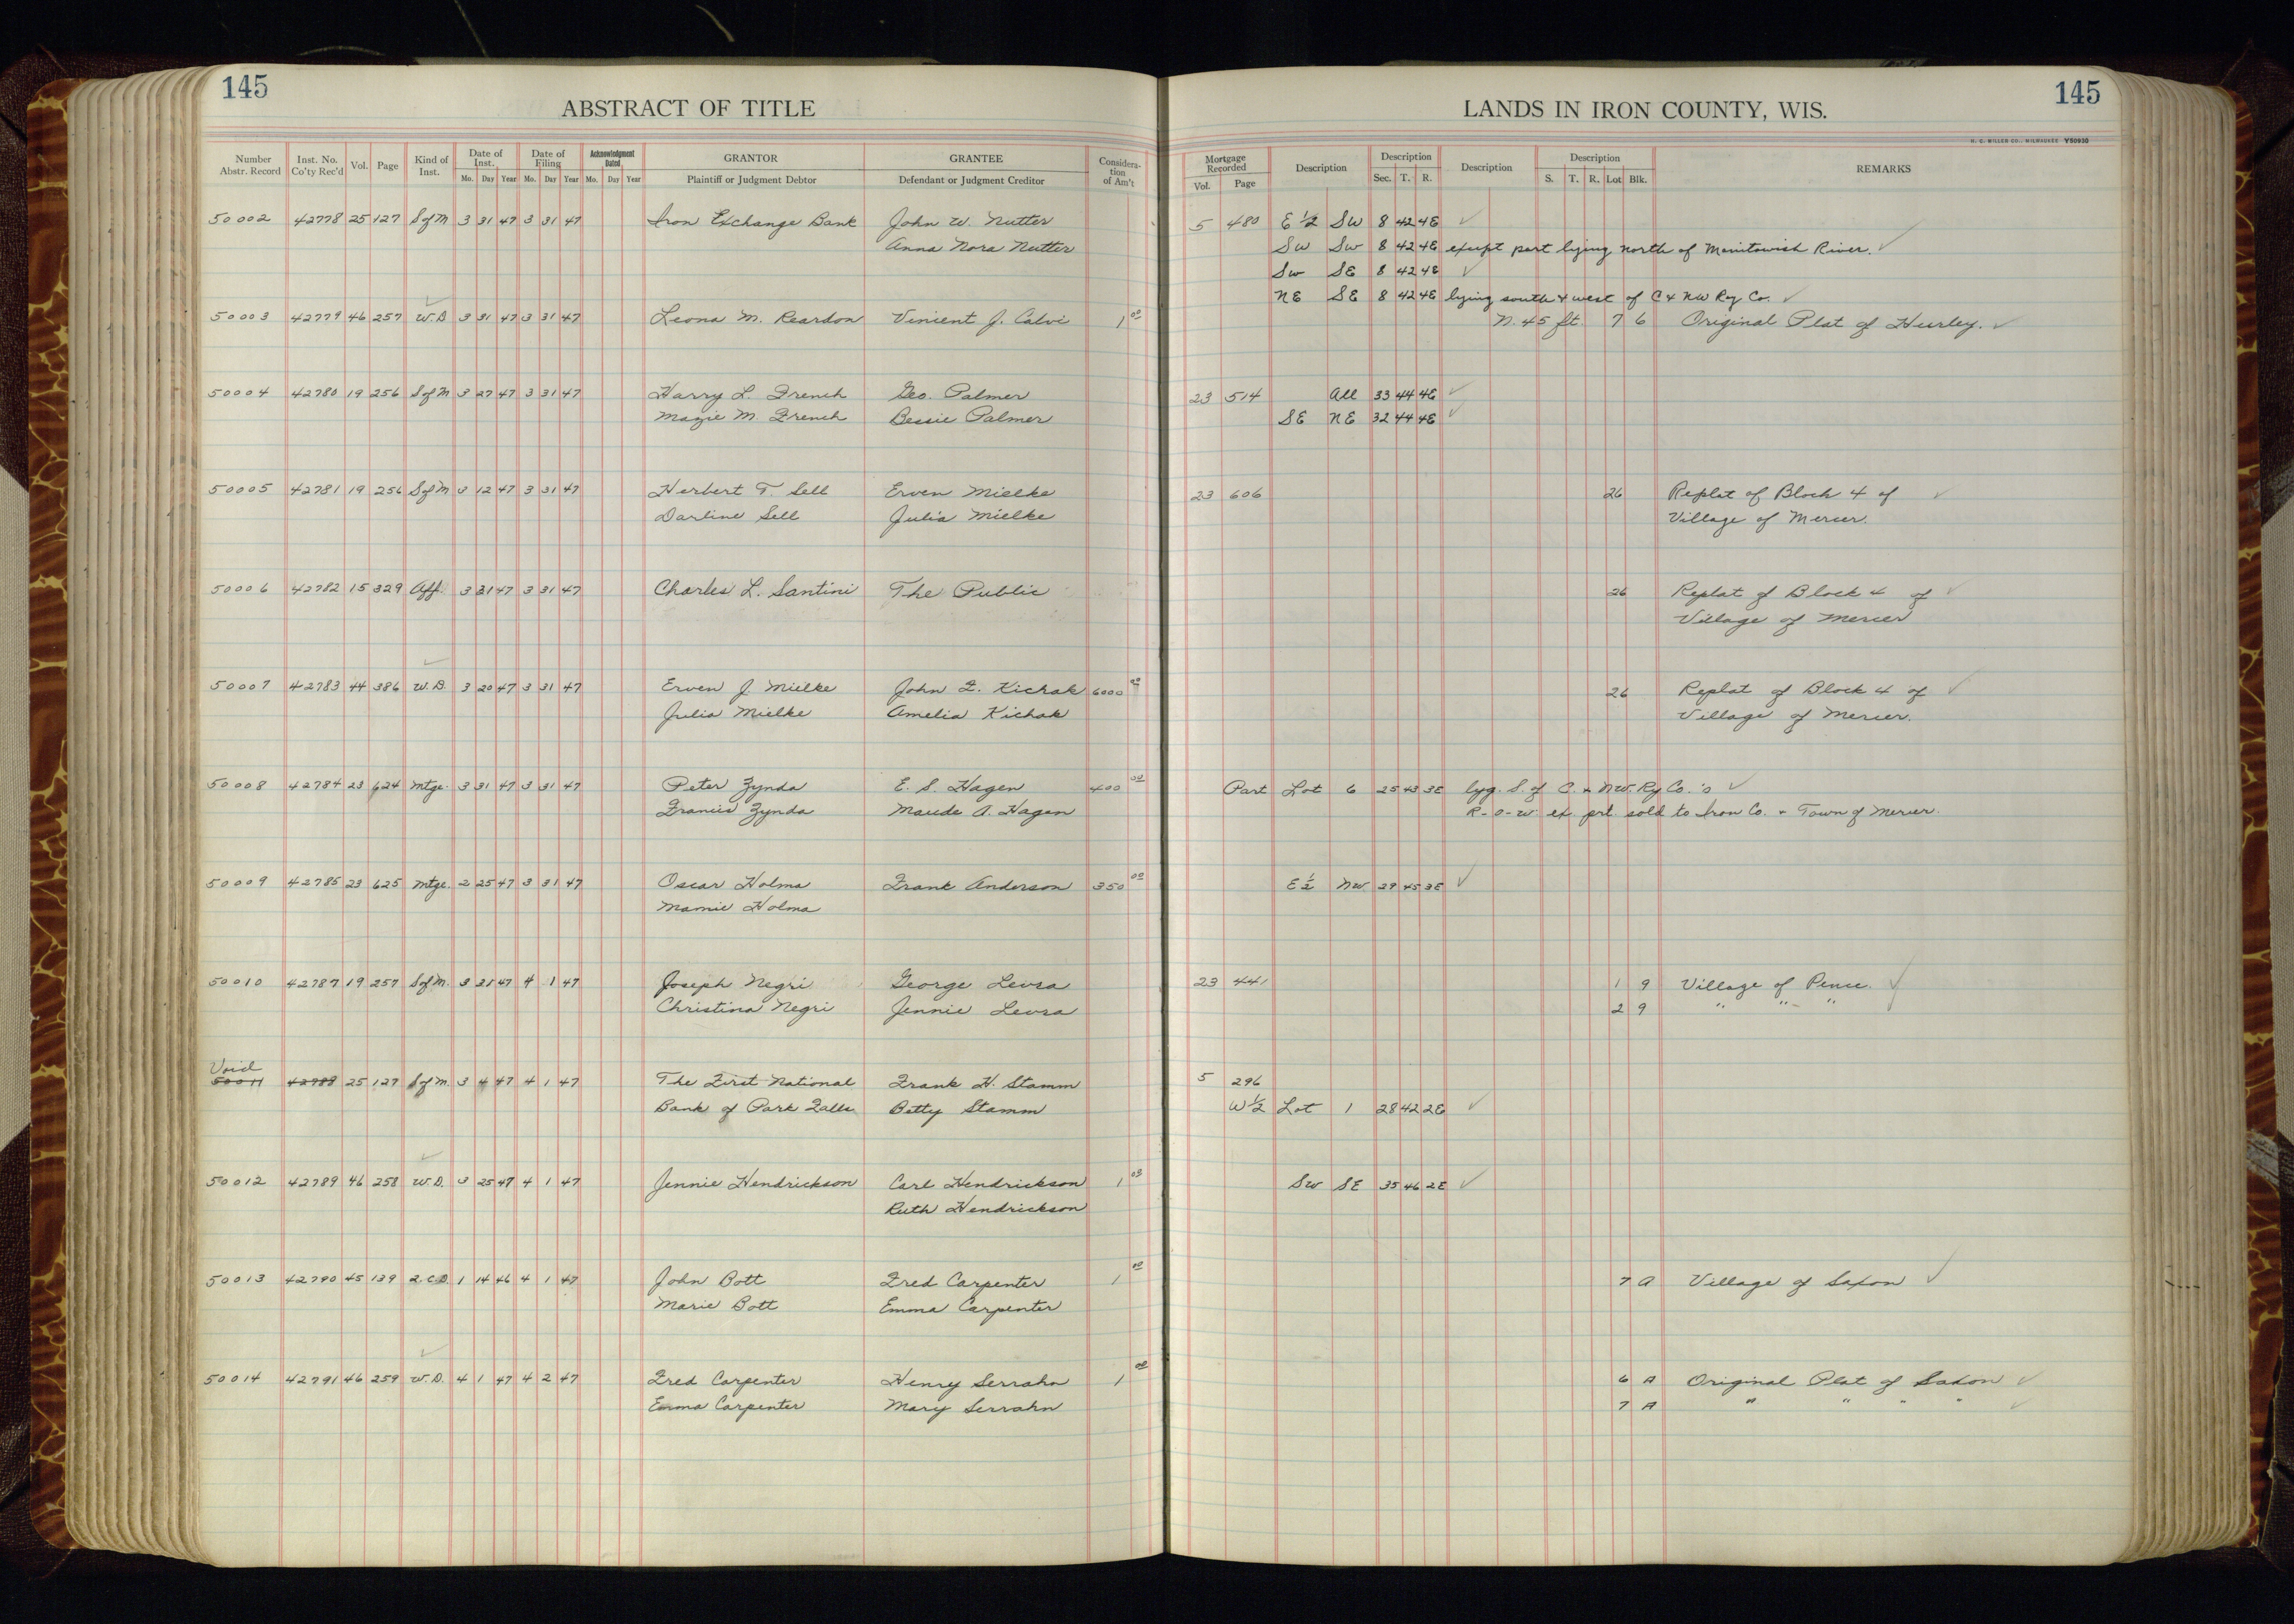 145
ABSTRACT OF TITLE
LANDS IN IRON COUNTY, WIS.
145
H. C. MILLER CO., MILWAUKEE Y50930
Number Abstr. Record Inst. No. Co'ty Rec'd Vol. Page Kind of Inst. Date of Inst. Mo. Day Year Date of Filing Mo. Day Year Acknowledgment Dated Mo. Day Year GRANTOR Plaintiff or Judgment Debtor GRANTEE Defendant or Judgment Creditor Consideration of Am't Mortgage Recorded Vol. Page Description Description Sec. T. R. Description Description S. T. R. Lot Blk. REMARKS
50002 42778 25 127 S of M 3 31 47 3 31 47 Iron Exchange Bank John W. Nutter 5 480 E 1/2 SW 8 42 4E ✓
Anna Nora Nutter SW SW 8 42 4E except part lying north of Manitowish River. ✓
SW SE 8 42 4E ✓
NE SE 8 42 4E lying south & west of C & NW Ry Co. ✓
50003 42779 46 257 W.D 3 31 47 3 31 47 Leona M. Reardon Vincent J. Calvi 1 00 N. 45 ft. 7 6 Original Plat of Hurley. ✓
50004 42780 19 256 S of M 3 27 47 3 31 47 Harry L. French Geo. Palmer 23 514 All 33 44 4E ✓
Mazie M. French Bessie Palmer SE NE 32 44 4E ✓
50005 42781 19 256 S of M 3 12 47 3 31 47 Herbert T. Sell Erven Mielke 23 606 26 Replat of Block 4 of ✓
Darline Sell Julia Mielke Village of Mercer.
50006 42782 15 329 Aff. 3 31 47 3 31 47 Charles L. Santini The Public 26 Replat of Block 4 of ✓
Village of Mercer
50007 42783 44 386 W.D. 3 20 47 3 31 47 Erven J. Mielke John F. Kichak 6000 00 26 Replat of Block 4 of ✓
Julia Mielke Amelia Kichak Village of Mercer.
50008 42784 23 624 Mtge. 3 31 47 3 31 47 Peter Zynda E. S. Hagen 400 00 Part Lot 6 25 43 3E lyg. S. of C. & N.W. Ry Co.'s ✓
Francis Zynda Maude A. Hagen R-O-W. ex. prt. sold to Iron Co. & Town of Mercer.
50009 42785 23 625 Mtge. 2 25 47 3 31 47 Oscar Holma Frank Anderson 350 00 E 1/2 NW 29 45 3E ✓
Mamie Holma
50010 42787 19 257 S of M. 3 31 47 4 1 47 Joseph Negri George Levra 23 441 1 9 Village of Pence. ✓
Christina Negri Jennie Levra 2 9 " " "
Void
50011 42788 25 127 S of M. 3 4 47 4 1 47 The First National Frank H. Stamm 5 296
Bank of Park Falls Betty Stamm W 1/2 Lot 1 28 42 2E ✓
50012 42789 46 258 W.D. 3 25 47 4 1 47 Jennie Hendrickson Carl Hendrickson 1 00 SW SE 35 46 2E ✓
Ruth Hendrickson
50013 42790 45 139 Q.C.D. 1 14 46 4 1 47 John Bott Fred Carpenter 1 00 7 A Village of Saxon ✓
Marie Bott Emma Carpenter
50014 42791 46 259 W.D. 4 1 47 4 2 47 Fred Carpenter Henry Serrahn 1 00 6 A Original Plat of Saxon ✓
Emma Carpenter Mary Serrahn 7 A " " " " ✓